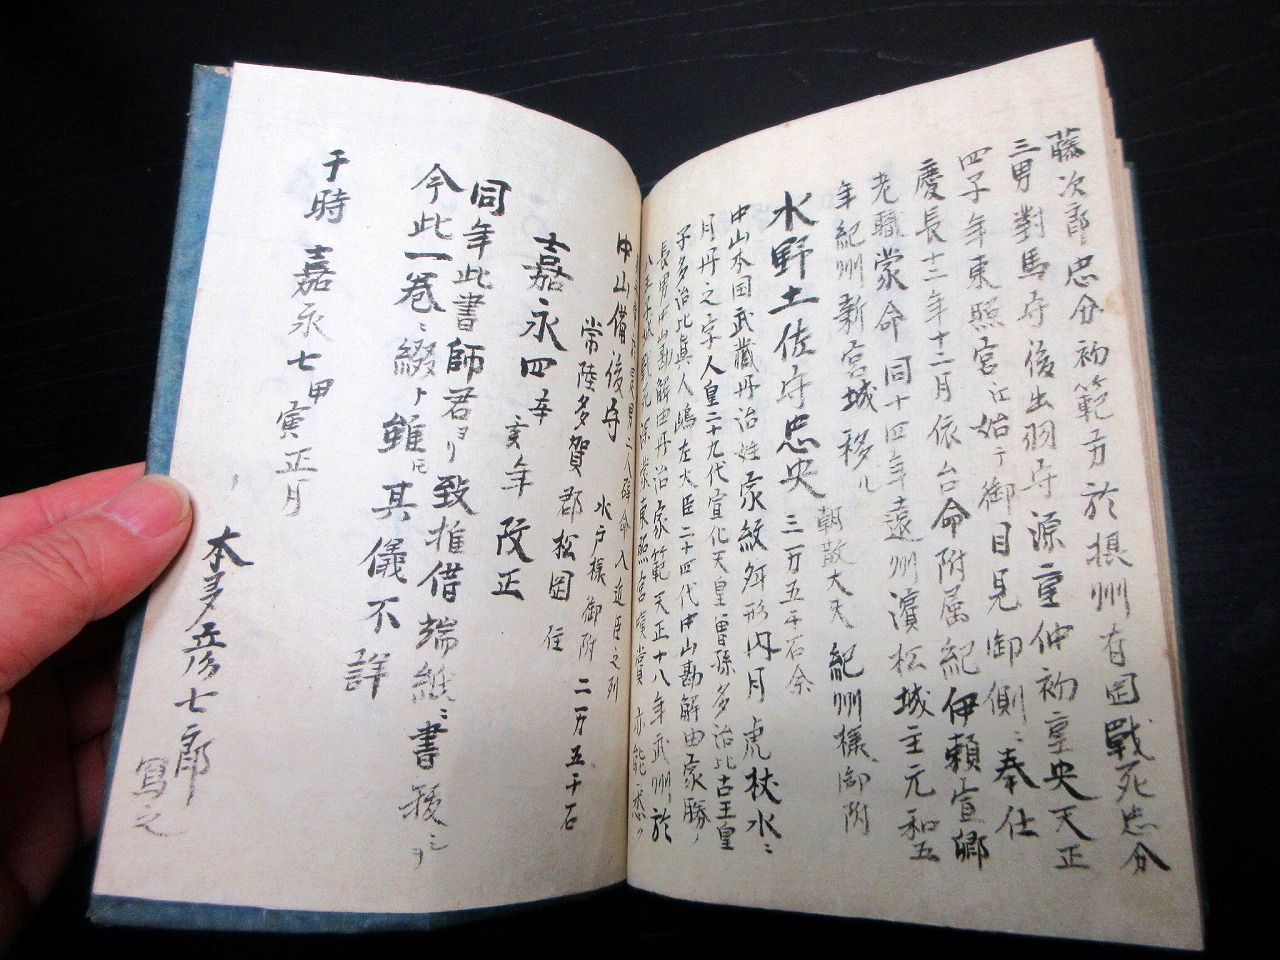 藤次郎忠分初範方於摂州有岡戦死忠分
三男對馬守後出羽守源重仲初重央天正
四子年東照宮江始テ御目見御側ニ奉仕
慶長十二年十二月依台命附属紀伊頼宣卿
老職蒙命同十四年遠州濱松城主元和五
年紀州新宮城移ル
朝散大夫 紀州様御附
水野土佐守忠央 三万五千石余
中山本国武藏丹治姓家紋舛形内月虎杖水ニ
月丹之字人皇二十九代宣化天皇曽孫多治比古王皇
子多治比眞人嶋左大臣二十四代中山勘解由家勝ノ
長男中山勘解由丹治家範天正十八年武州於
八王子城
水戸様御附 二万五千石
中山備後守
常陸多賀郡松岡住
嘉永四辛亥年改正
同年此書師君ヨリ致推借端紙ニ書
今此一巻ニ綴ト雖モ其儀不詳
于時嘉永七甲寅正月
本多彦七郎
寫之